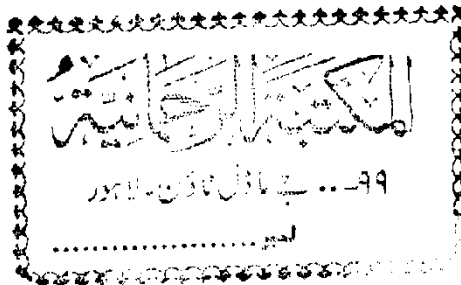 المکتبۃ الرحمانیۃ
۹۹... جے ماڈل ٹاؤن۔ لاہور
نمبر....................